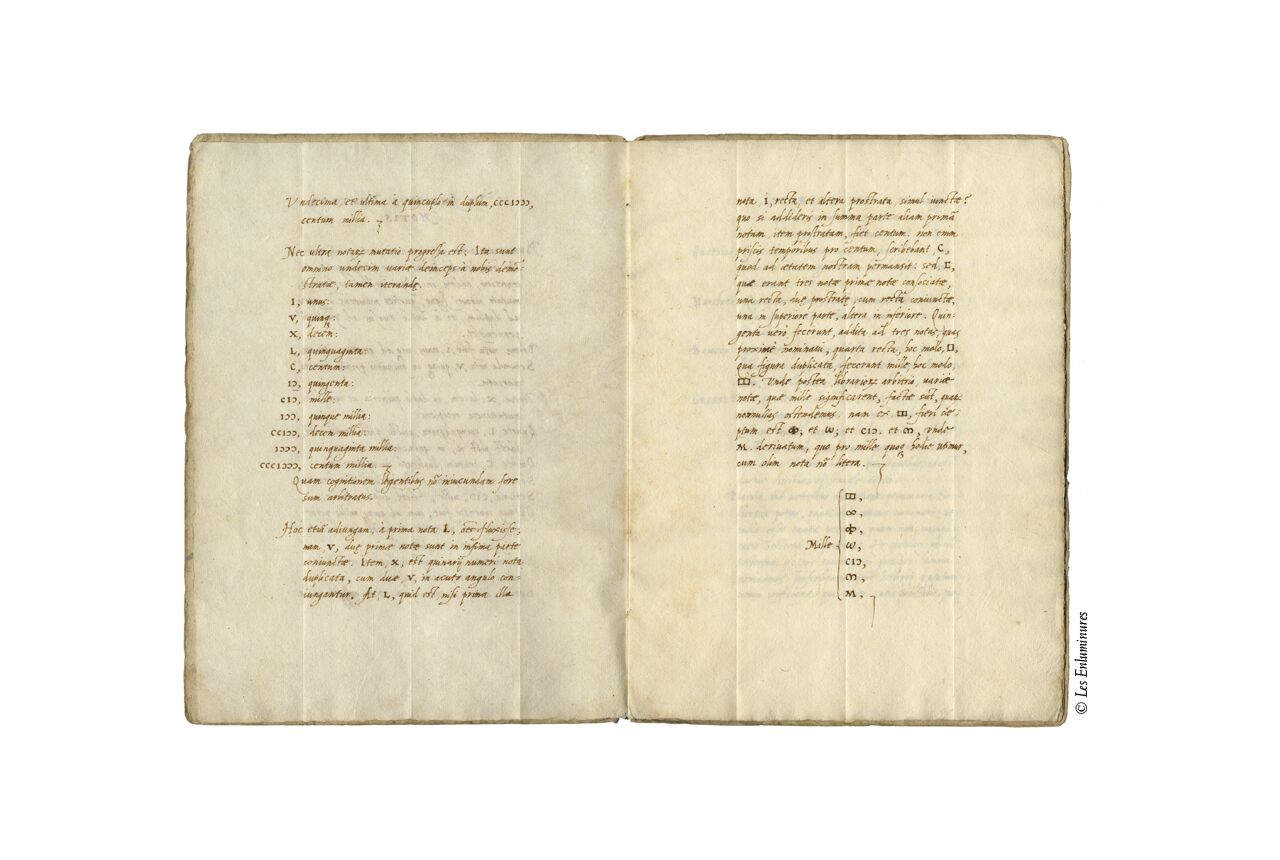 Vndecima, et ultima à quincuplo in duplum, CCCIƆƆƆ,
centum millia.
Nec ultra notarũ mutatio progressa est: Ita sunt
omnino undecim variæ deinceps à nobis demõ-
stratæ, tamen iterandę.
I, unus:
V, quinq:
X, decem:
L, quinquaginta:
C, centum:
IƆ, quingenta:
CIƆ, mille:
IƆƆ, quinque millia:
CCIƆƆ, decem millia:
IƆƆƆ, quinquaginta millia:
CCCIƆƆƆ, centum millia.
Quam cognitionem legentibus nõ iniucundam fore
sum arbitratus.
Hoc etiã adiungam, à prima nota I, oẽs fluxisse,
nam V, duę primæ notæ sunt in infima parte
coniunctæ. Item, X, est quinarij numeri nota
duplicata, cum duæ V, in acuto angulo con-
iungantur. At L, quid est nisi prima illa
nota I, recta, et altera prostrata, simul iunctæ?
quo si addideris in summa parte aliam primã
notam item prostratam, fiet centum. non enim
priscis temporibus pro centum, scribebant C,
quod ad ætatem nostram permansit: sed, [,
quæ erant tres notæ primæ notæ consociatæ,
una recta, duę postratę, cum recta coniunctæ,
una in superiore parte, altera in inferiore. Quin-
genta verò fecerunt, addita ad tres notas, quas
proximè nominaui, quarta recta, hoc modo, □,
qua figura duplicata, fecerunt mille, hoc modo,
□□. Unde postea librariorũ arbitrio, variæ
notæ, quæ mille significarent, factæ sũt, quarũ
nonnullas ostendemus. nam ex □□, fieri cœ-
ptum est ⏀; et ω; et CIƆ. et ෆ, vnde
M. deriuatum, quo pro mille quoq hodie utimur,
cum olim nota nõ litera.
□□,
∞,
⏀,
Mille ω,
CIƆ,
ෆ,
M,
© Les Enluminures